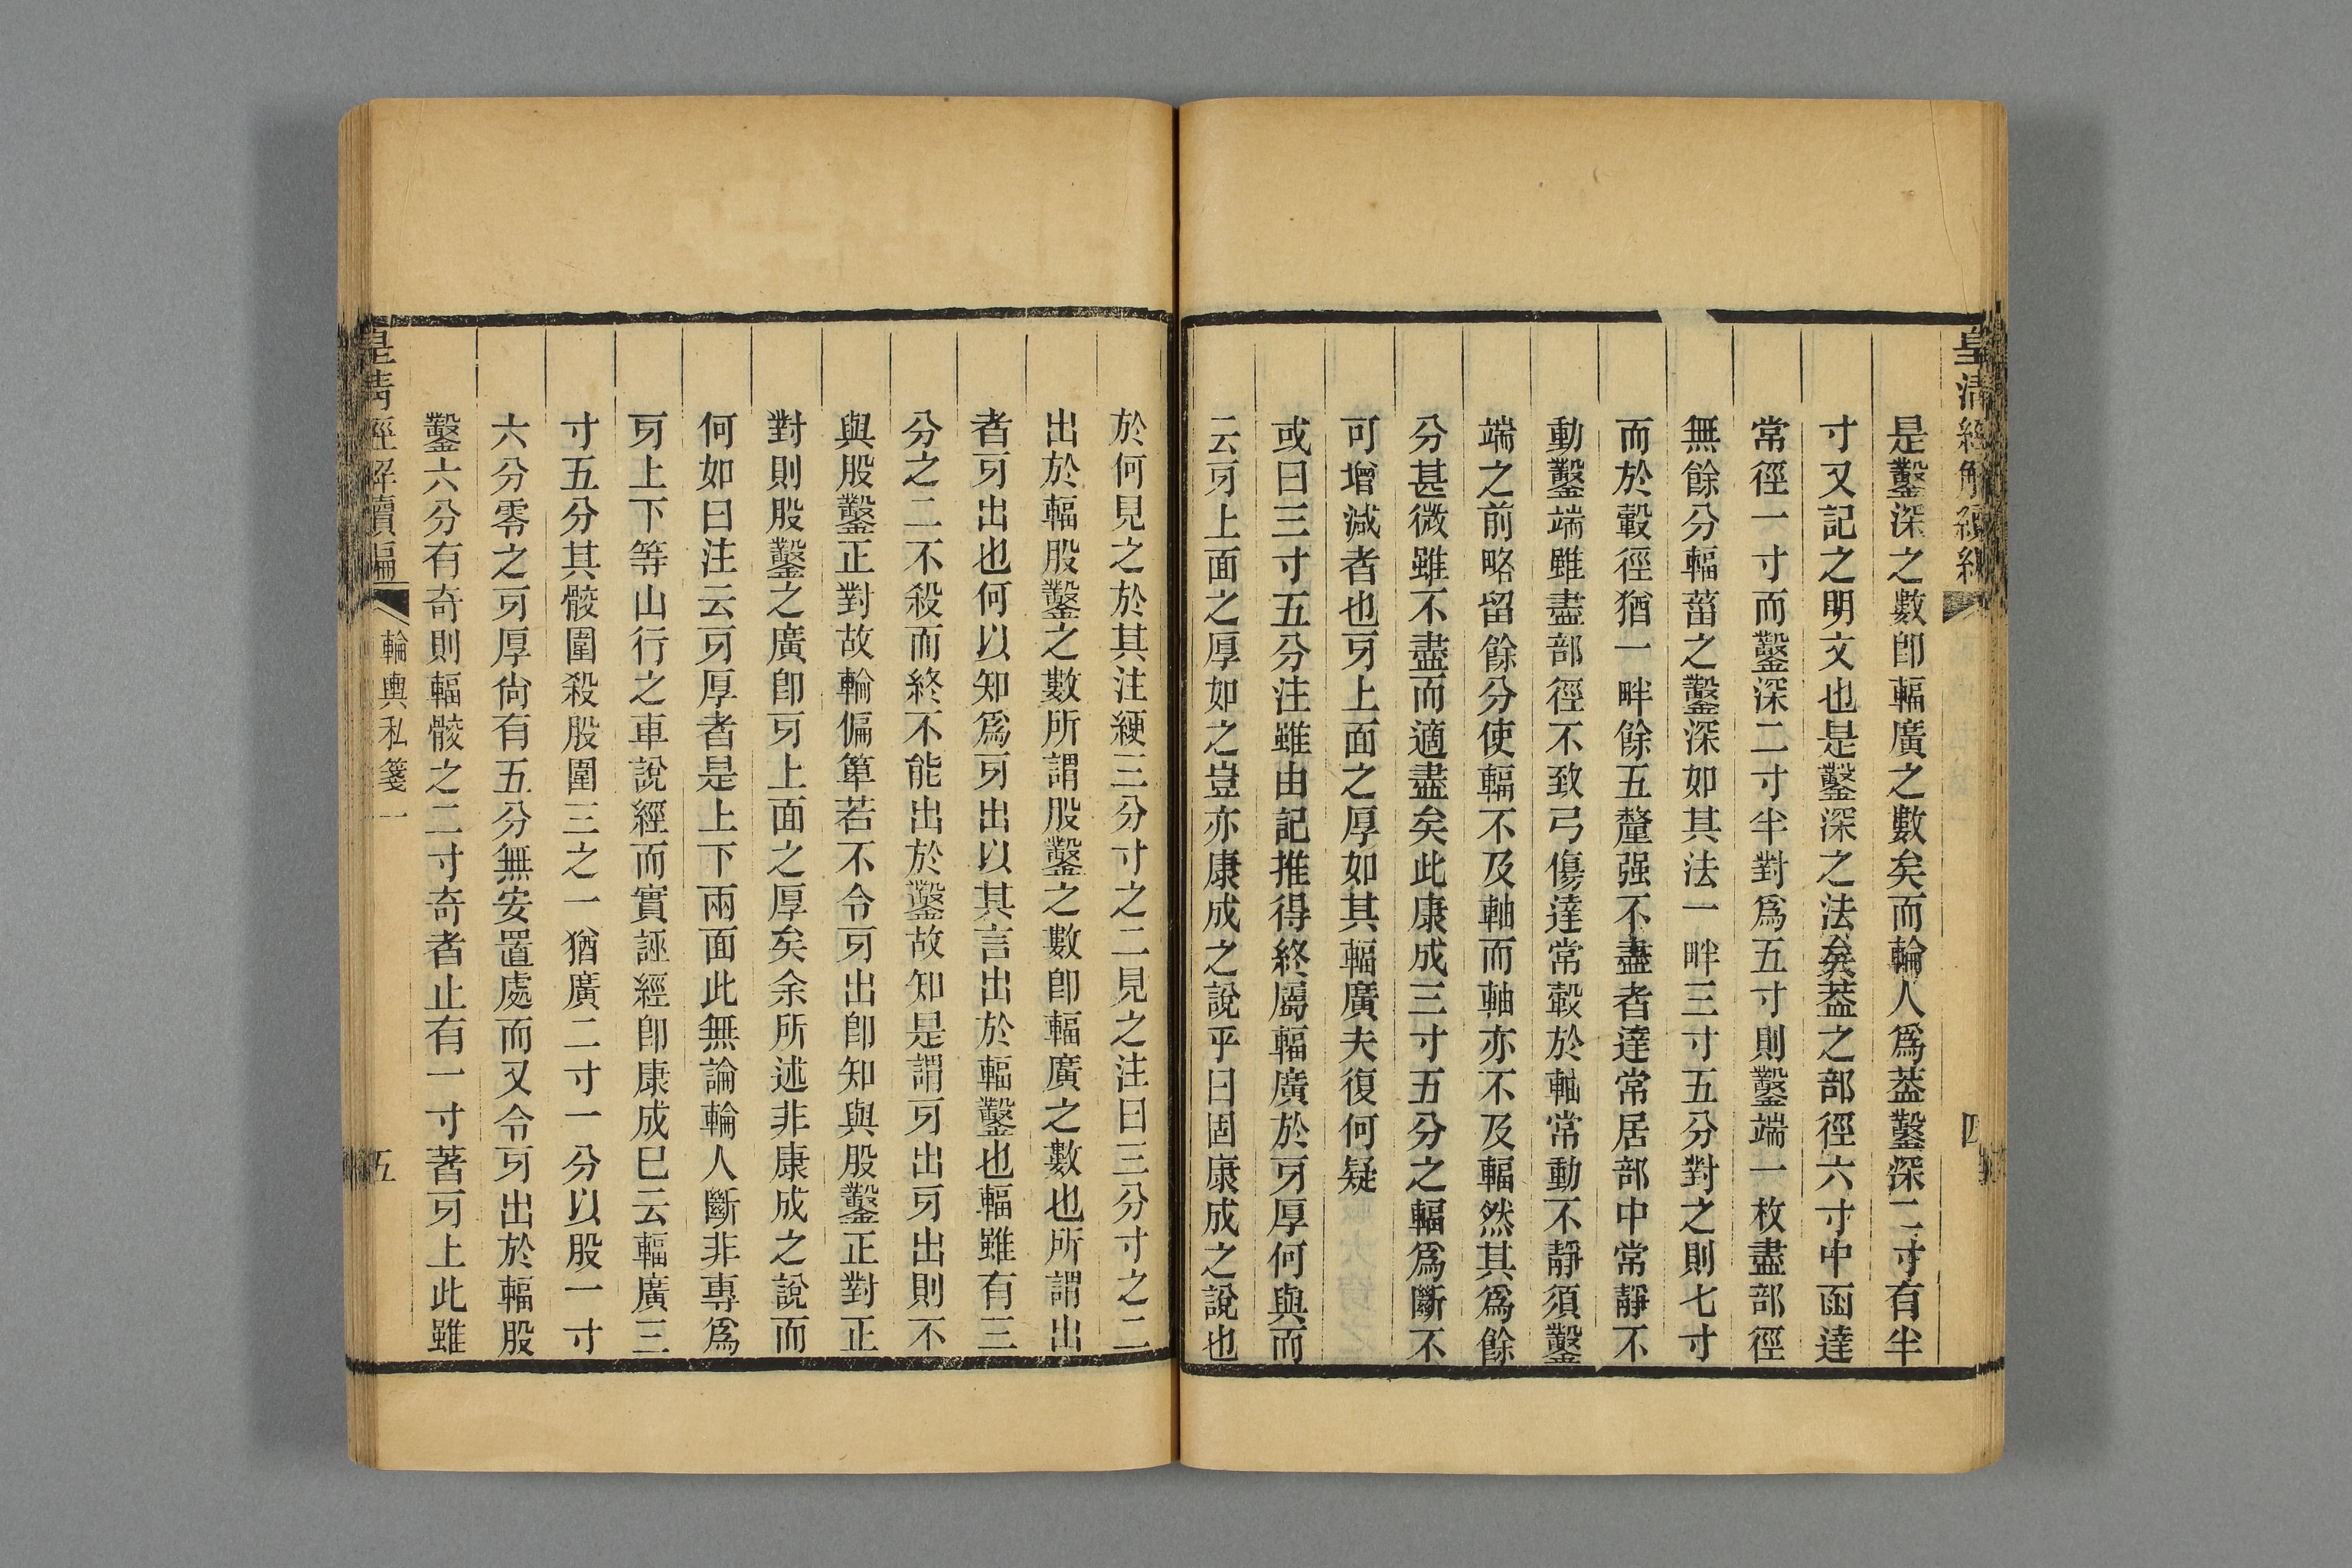 皇清經解續編
四
是鑿深之數卽輻廣之數矣而輪人爲葢鑿深二寸有半
寸又記之明文也是鑿深之法矣葢之部徑六寸中函達
常徑一寸而鑿深二寸半對爲五寸則鑿端一枚盡部徑
無餘分輻菑之鑿深如其法一畔三寸五分對之則七寸
而於轂徑猶一畔餘五釐强不盡者達常居部中常靜不
動鑿端雖盡部徑不致弓傷達常轂於軸常動不靜須鑿
端之前略留餘分使輻不及軸而軸亦不及輻然其爲餘
分甚微雖不盡而適盡矣此康成三寸五分之輻爲斷不
可增減者也牙上面之厚如其輻廣夫復何疑
或曰三寸五分注雖由記推得終屬輻廣於牙厚何與而
云牙上面之厚如之豈亦康成之說乎曰固康成之說也
於何見之於其注綆三分寸之二見之注曰三分寸之二
出於輻股鑿之數所謂股鑿之數卽輻廣之數也所謂出
者牙出也何以知爲牙出以其言出於輻鑿也輻雖有三
分之二不殺而終不能出於鑿故知是謂牙出牙出則不
與股鑿正對故輪偏箄若不令牙出卽知與股鑿正對正
對則股鑿之廣卽牙上面之厚矣余所述非康成之說而
何如曰注云牙厚者是上下兩面此無論輪人斷非專爲
牙上下等山行之車說經而實誣經卽康成巳云輻廣三
寸五分其骹圍殺股圍三之一猶廣二寸一分以股一寸
六分零之牙厚尙有五分無安置處而又令牙出於輻股
鑿六分有奇則輻骹之二寸奇者止有一寸著牙上此雖
皇清經解續編
輪輿私箋一
五